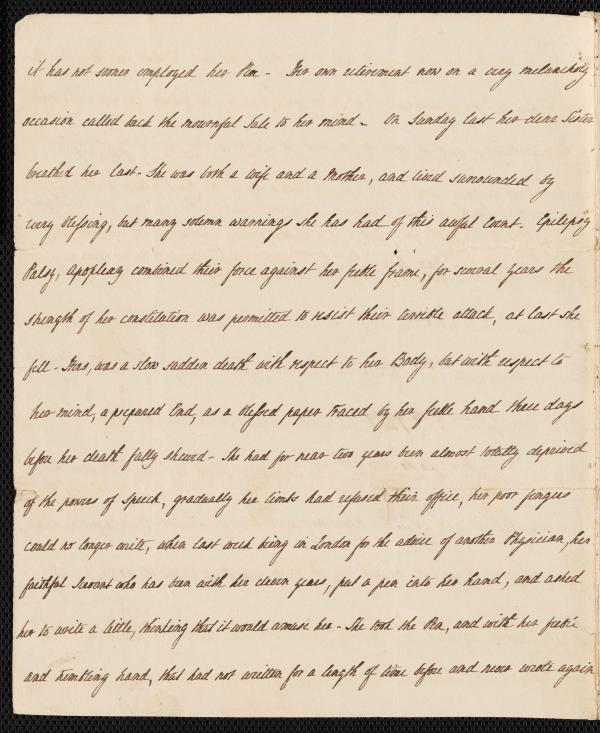 it has not sooner employed her Pen - Her own retirement now on a very melancholy
occasion called back the mournful Tale to her mind - On Sunday last her dear Sister
breathed her last - She was both a wife and a Mother, and lived surrounded by
every blessing, but many solemn warnings she has had of this awful Event. Epilepsy
Palsy, Apoplexy combined their force against her feeble frame, for several years the
strength of her constitution was permitted to resist their terrible attack, at last she
fell - Hers, was a slow sudden death with respect to her Body, but with respect to
her mind, a prepared End, as a blessed paper traced by her feeble hand three days
before her death fully shewed - She had for near two years been almost totally deprived
of the powers of Speech, gradually her limbs had refused their office, her poor fingers
could no longer write, when last week being in London for the advice of another Physician, her
faithful Servant who has been with her eleven years, put a pen into her hand, and asked
her to write a little, thinking that it would amuse her - She took the Pen, and with her feeble
and trembling hand, that had not written for a length of time before and never wrote again